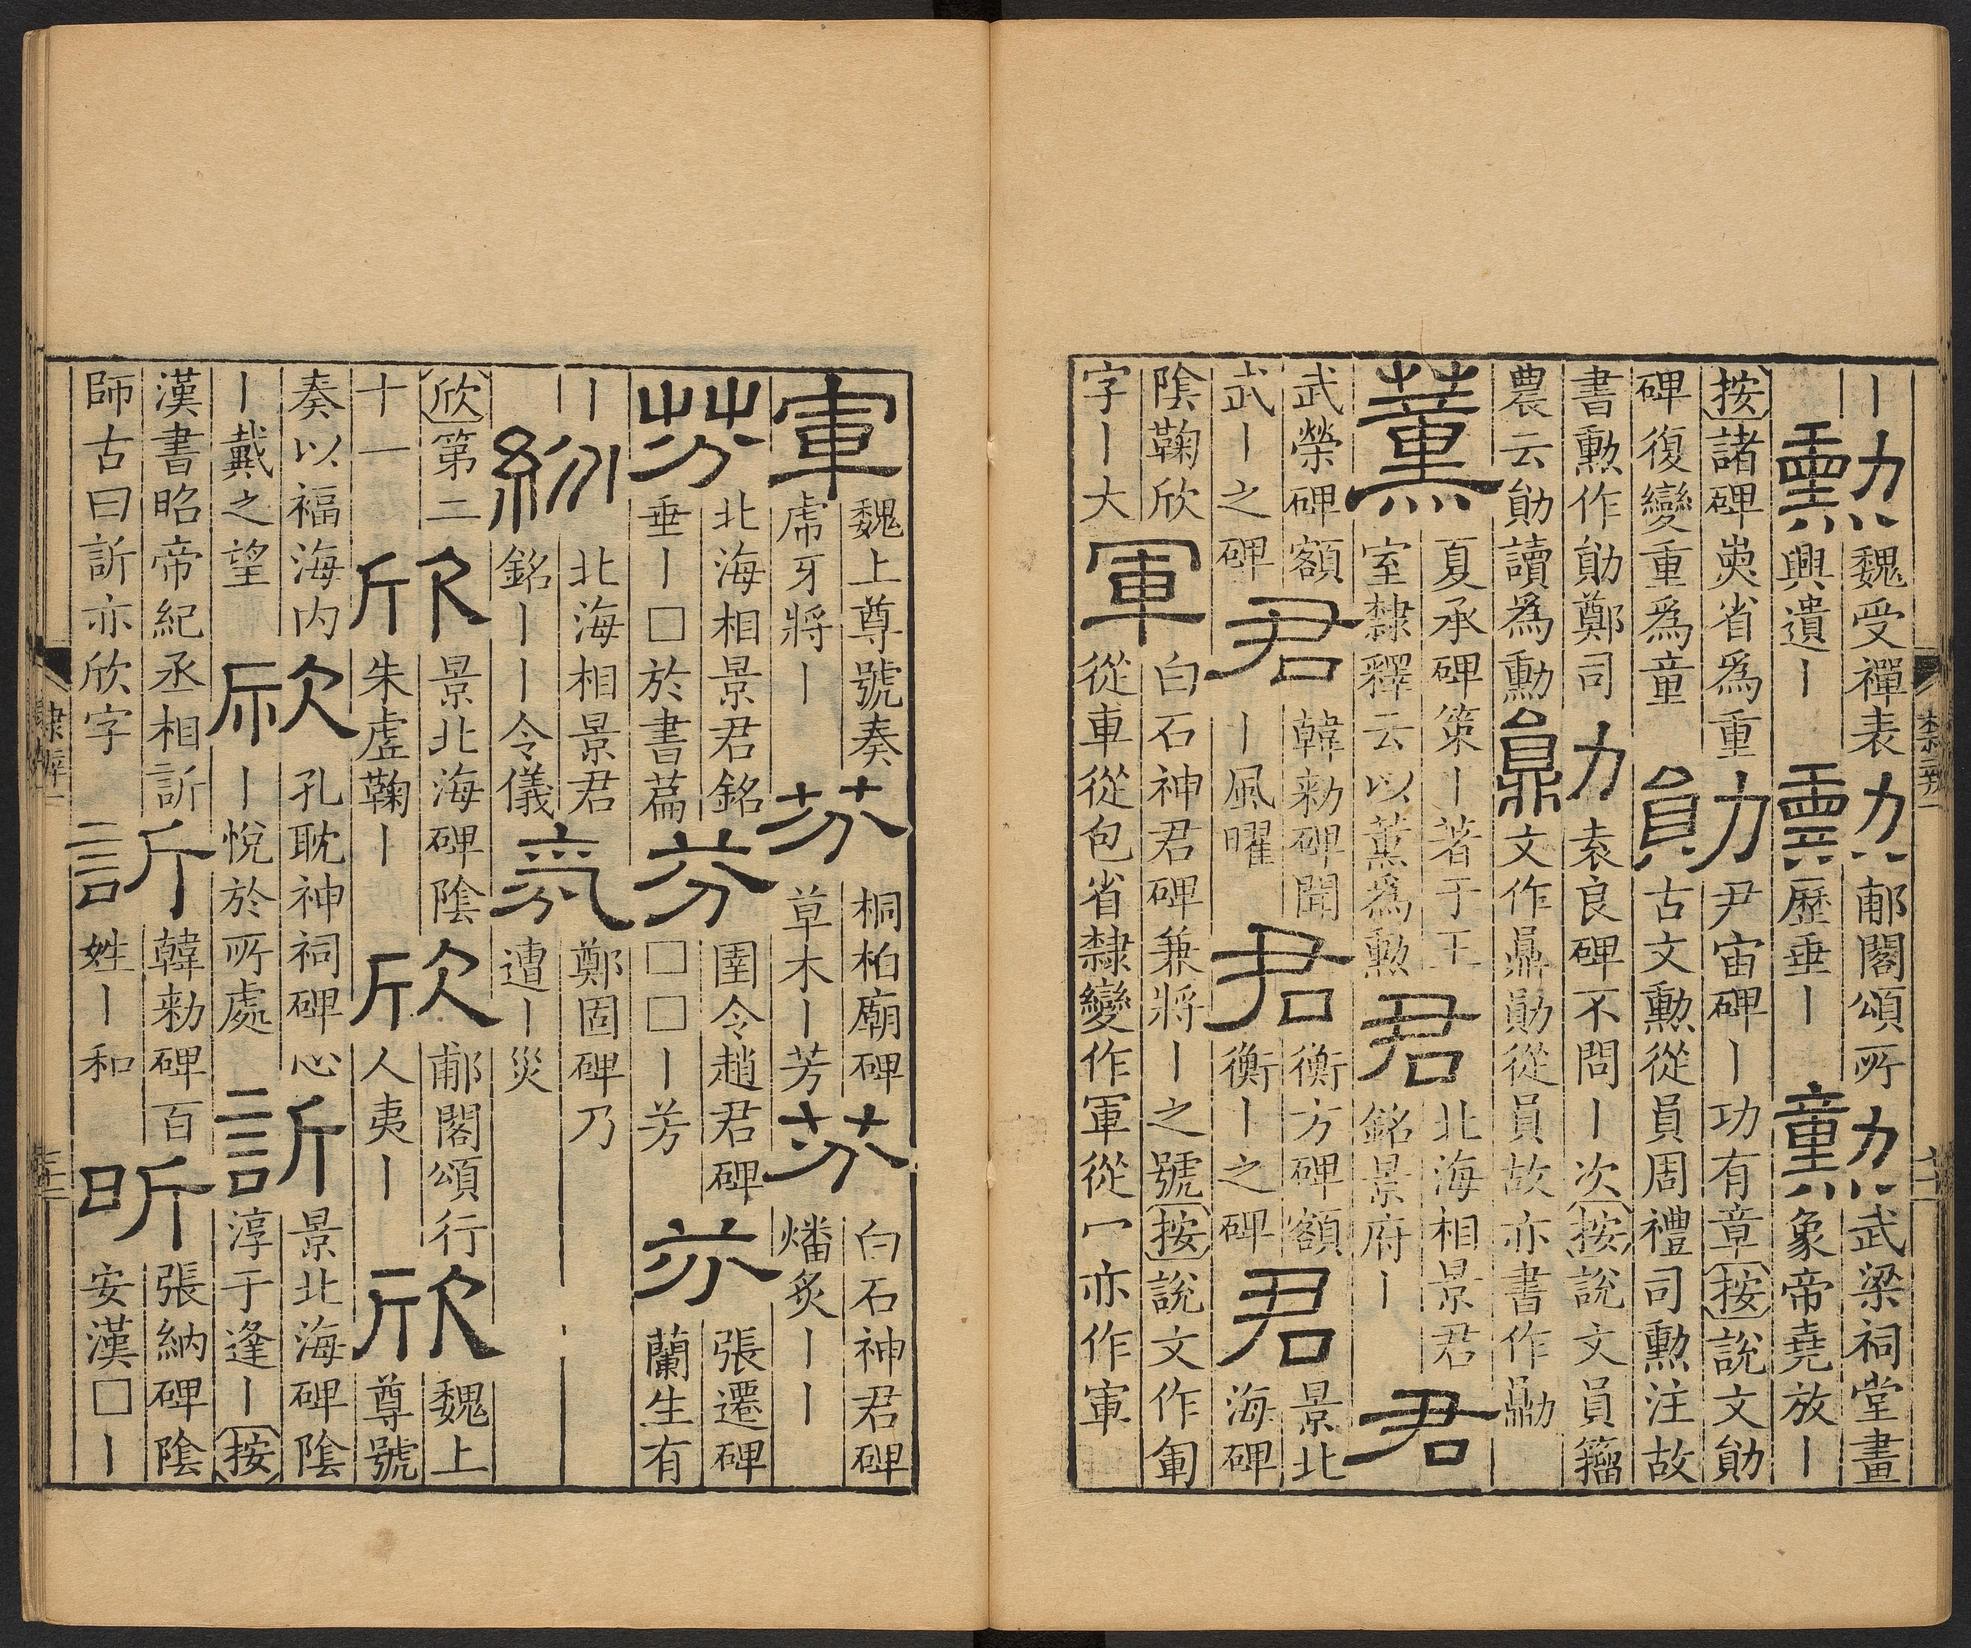 丨勳魏受禪表興遺丨勳郙閣頌所歷垂丨勳武梁祠堂畫象帝堯放丨
按諸碑省爲重碑復變重爲童勛尹宙碑丨功有章按說文勛古文勳從員周禮司勳注故
書勳作勛鄭司農云勛讀爲勳袁良碑不問丨次按說文員籀文作鼎勛從員故亦書作
薰夏承碑策丨著于王室隸釋云以薰爲勳君北海相景君銘景府丨君
武榮碑額武丨之碑君韓勑碑聞丨風曜君衡方碑額衡丨之碑君景北海碑
陰鞠欣字丨大軍白石神君碑兼將丨之號按說文作𠣞從車從包省隸變作軍從冖亦作軍
隸辨一
軍魏上尊號奏虎牙將丨芬桐柏廟碑草木丨芳芬白石神君碑燔炙丨丨
芬北海相景君銘垂丨□於書篇芬圉令趙君碑□□丨芳芬張遷碑蘭生有
丨紛北海相景君銘丨丨令儀氛鄭固碑乃遭丨災
欣第二十一欣景北海碑陰朱虛鞠丨欣郙閣頌行人夷丨欣魏上尊號
奏以福海内丨戴之望欣孔耽神祠碑心丨悅於所處訢景北海碑陰淳于逢丨按
漢書昭帝紀丞相訢師古曰訢亦欣字訢韓勑碑百姓丨和昕張納碑陰安漢□丨
隸辨一